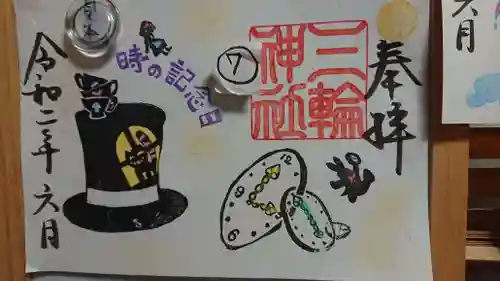 奉拝
三輪
神社
⑦
時の記念日
見本
令和二年 六月
12
六月